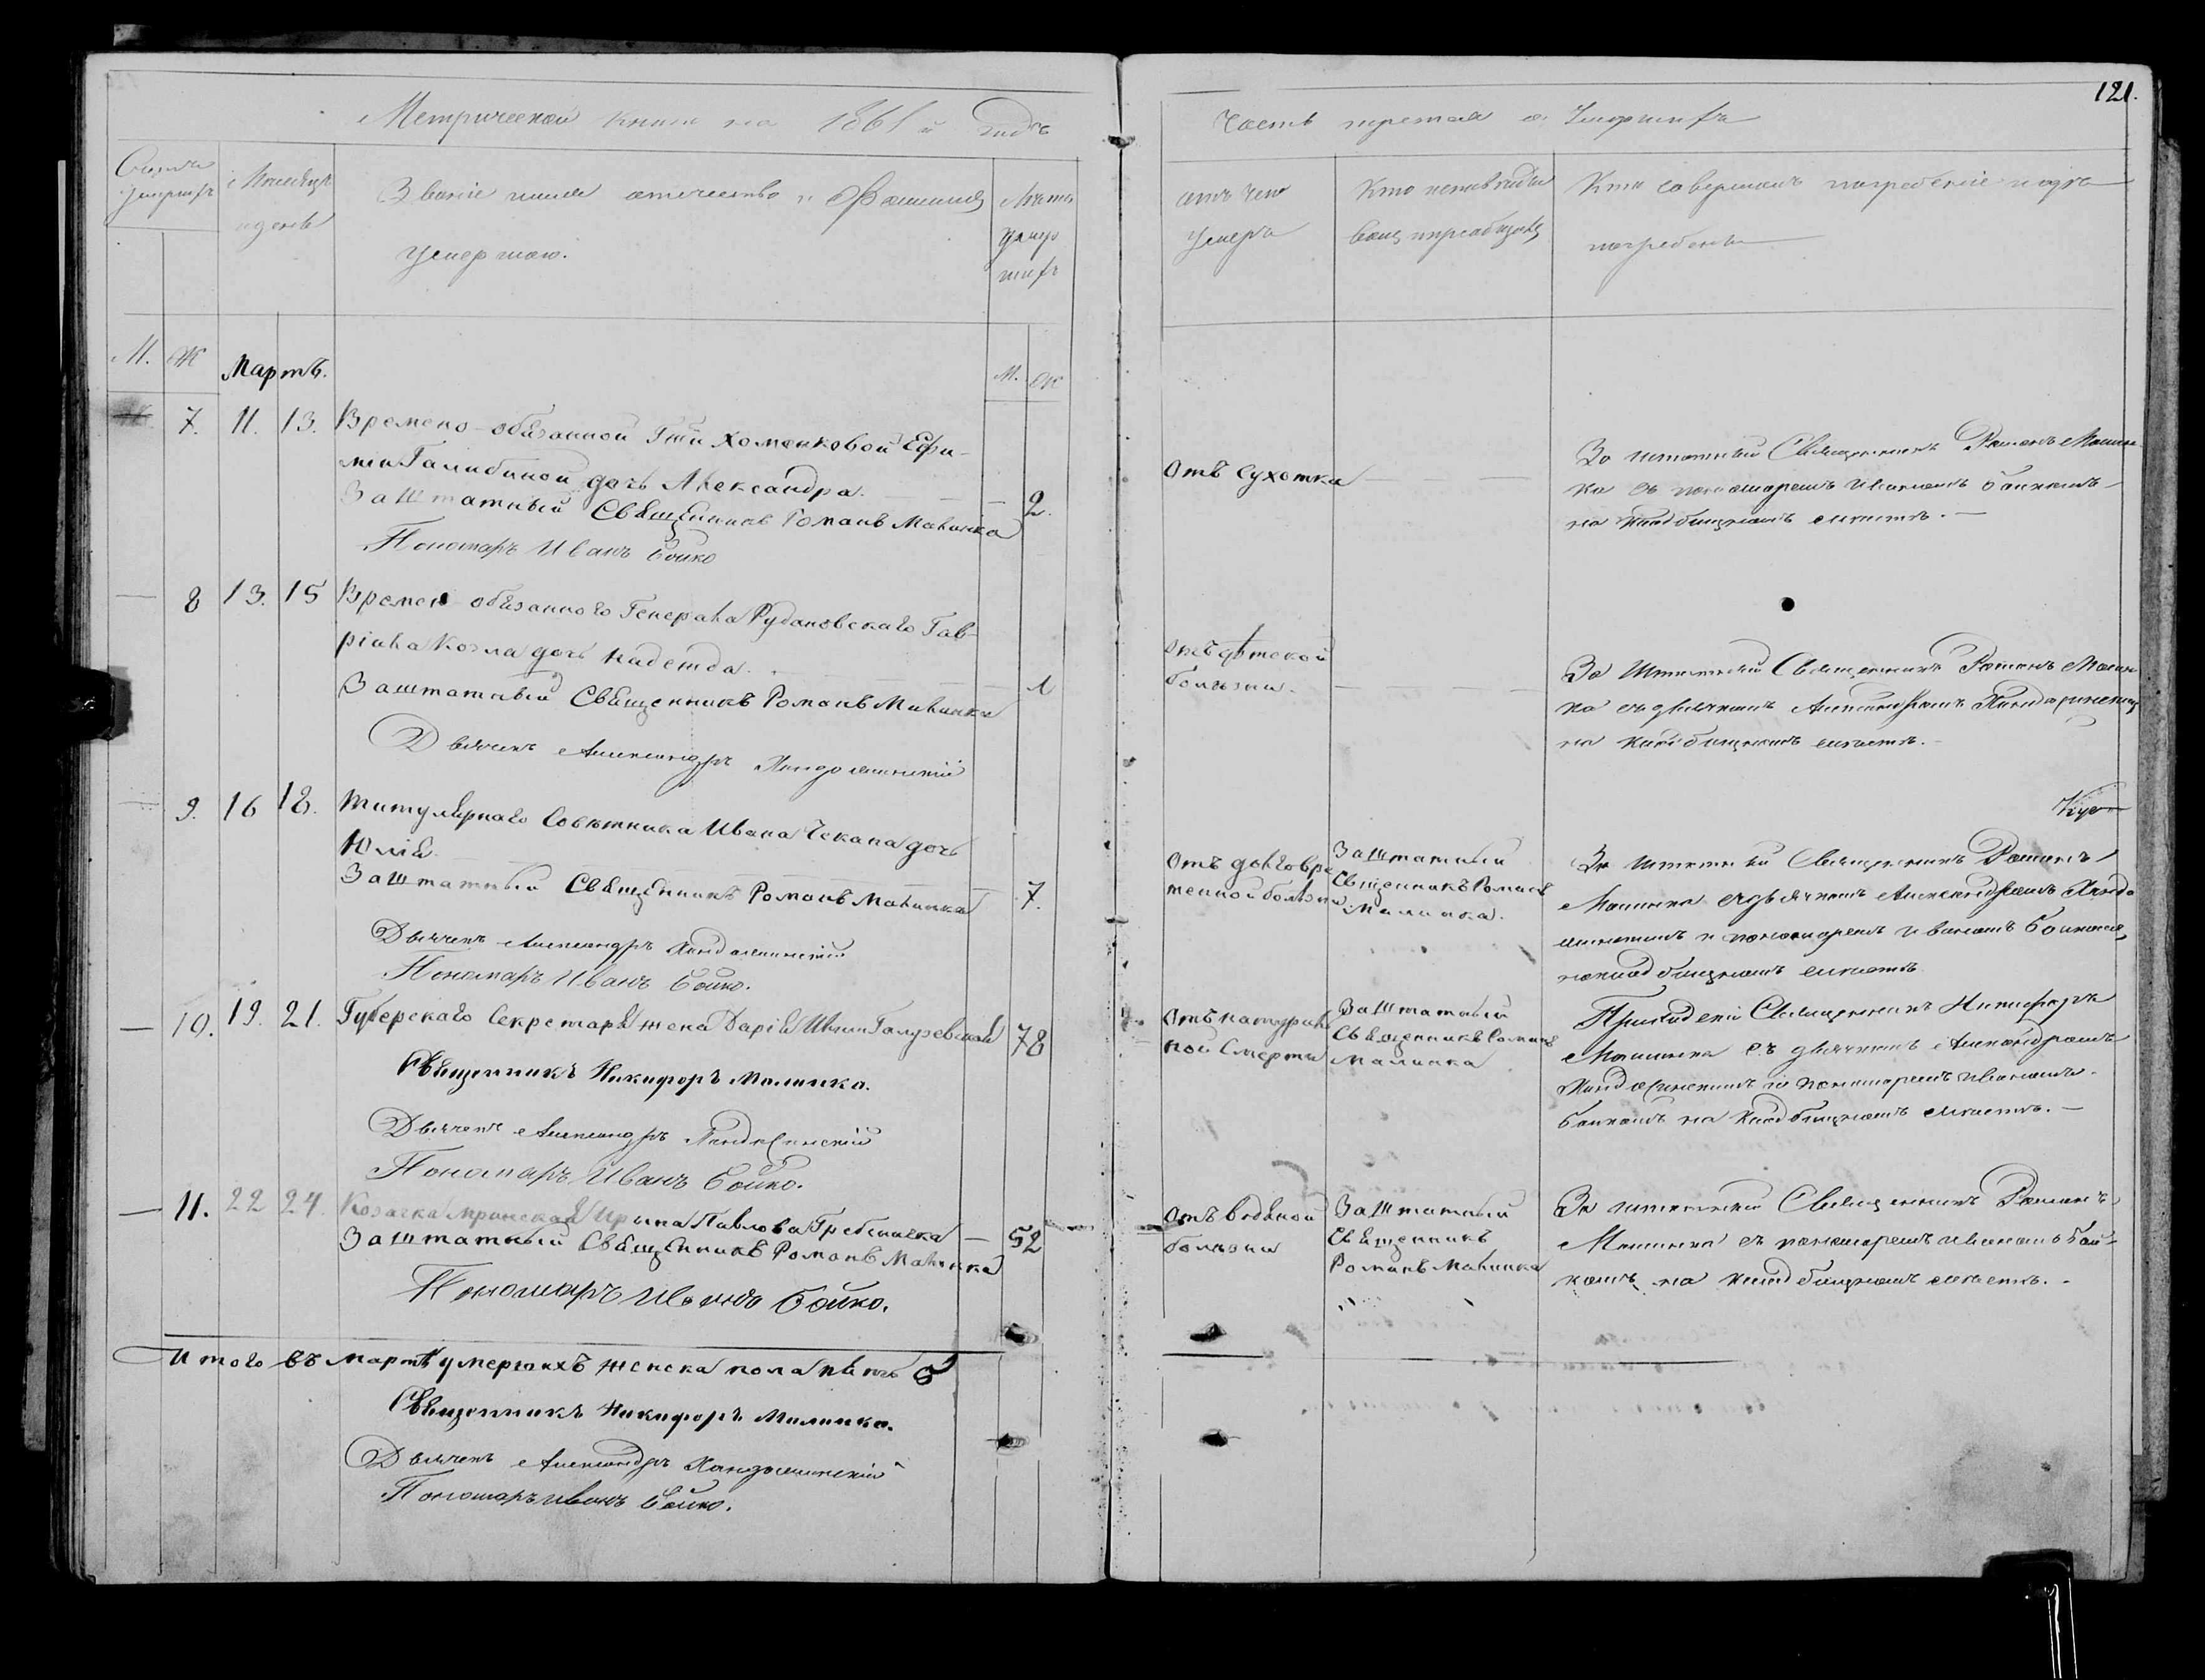 121.
Метрической книги на 1861й годъ
Часть третья о Умершихъ
Счетъ умершихъ
Месяцъ и день
Званіе имя отчество и Фамилія
умершаго.
Лета
умер
шихъ
отъ чего
умеръ
Кто исповедывалъ и пріобщалъ
Кто совершалъ погребеніе и где
погребены
М. Ж
Мартъ.
М. Ж
7. 11. 13. Времено-обязанной Гжи Хоменковой Ефи-
міи Галибиной дочь Александра.
2.
Заштатный Священникъ Романъ Малинка
Пономарь Иванъ Бойко
Отъ Сухотка
За штатный Священникъ Романъ Малин
ка съ пономаремъ Иваномъ Бойкомъ
на кладбищномъ месте.
8 13. 15 Времен обязанного Генерала Рудановскаго Гав-
ріила Козла дочь Надежда.
1
Заштатный Священникъ Романъ Малинка
Дьячекъ Александръ
Отъ детской
болезни.
За Штатный Священникъ Романъ Малин
ка съ дьячкомъ Александромъ
на кладбищномъ месте.
9. 16 18. Титулярнаго Советника Ивана Чекана дочь
Юлія.
7.
Заштатный Священникъ Романъ Малинка
Дьячекъ Александръ
Пономарь Иванъ Бойко.
Отъ долговре
менной болезни
Заштатный
Священникъ Романъ
Малинка.
За штатный Священникъ Романъ
Малинка съ дьячкомъ Александромъ
и пономаремъ Иваномъ Бойкомъ
на кладбищномъ месте
10. 19. 21. Губерскаго Секретаря жена Дарія
78
Священникъ Никифоръ Малинка.
Дьячекъ Александръ
Пономарь Иванъ Бойко.
Отъ натураль
ной Смерти
Заштатный
Священникъ Романъ
Малинка
Священникъ Никифоръ
Малинка съ дьячкомъ Александромъ
и пономаремъ Иваномъ
Бойкомъ на кладбищномъ месте.
11. 22 24. Козачка Мринская Ирина Павлова Гребеничка
52
Заштатный Священникъ Романъ Малинка
Пономарь Иванъ Бойко.
Отъ водяной
болезни
Заштатный
Священникъ
Романъ Малинка
За штатный Священникъ Романъ
Малинка съ пономаремъ Иваномъ Бой-
комъ на кладбищномъ месте.
Итого въ марте умершихъ женска пола пять 5
Священникъ Никифоръ Малинка.
Дьячекъ Александръ
Пономарь Иванъ Бойко.